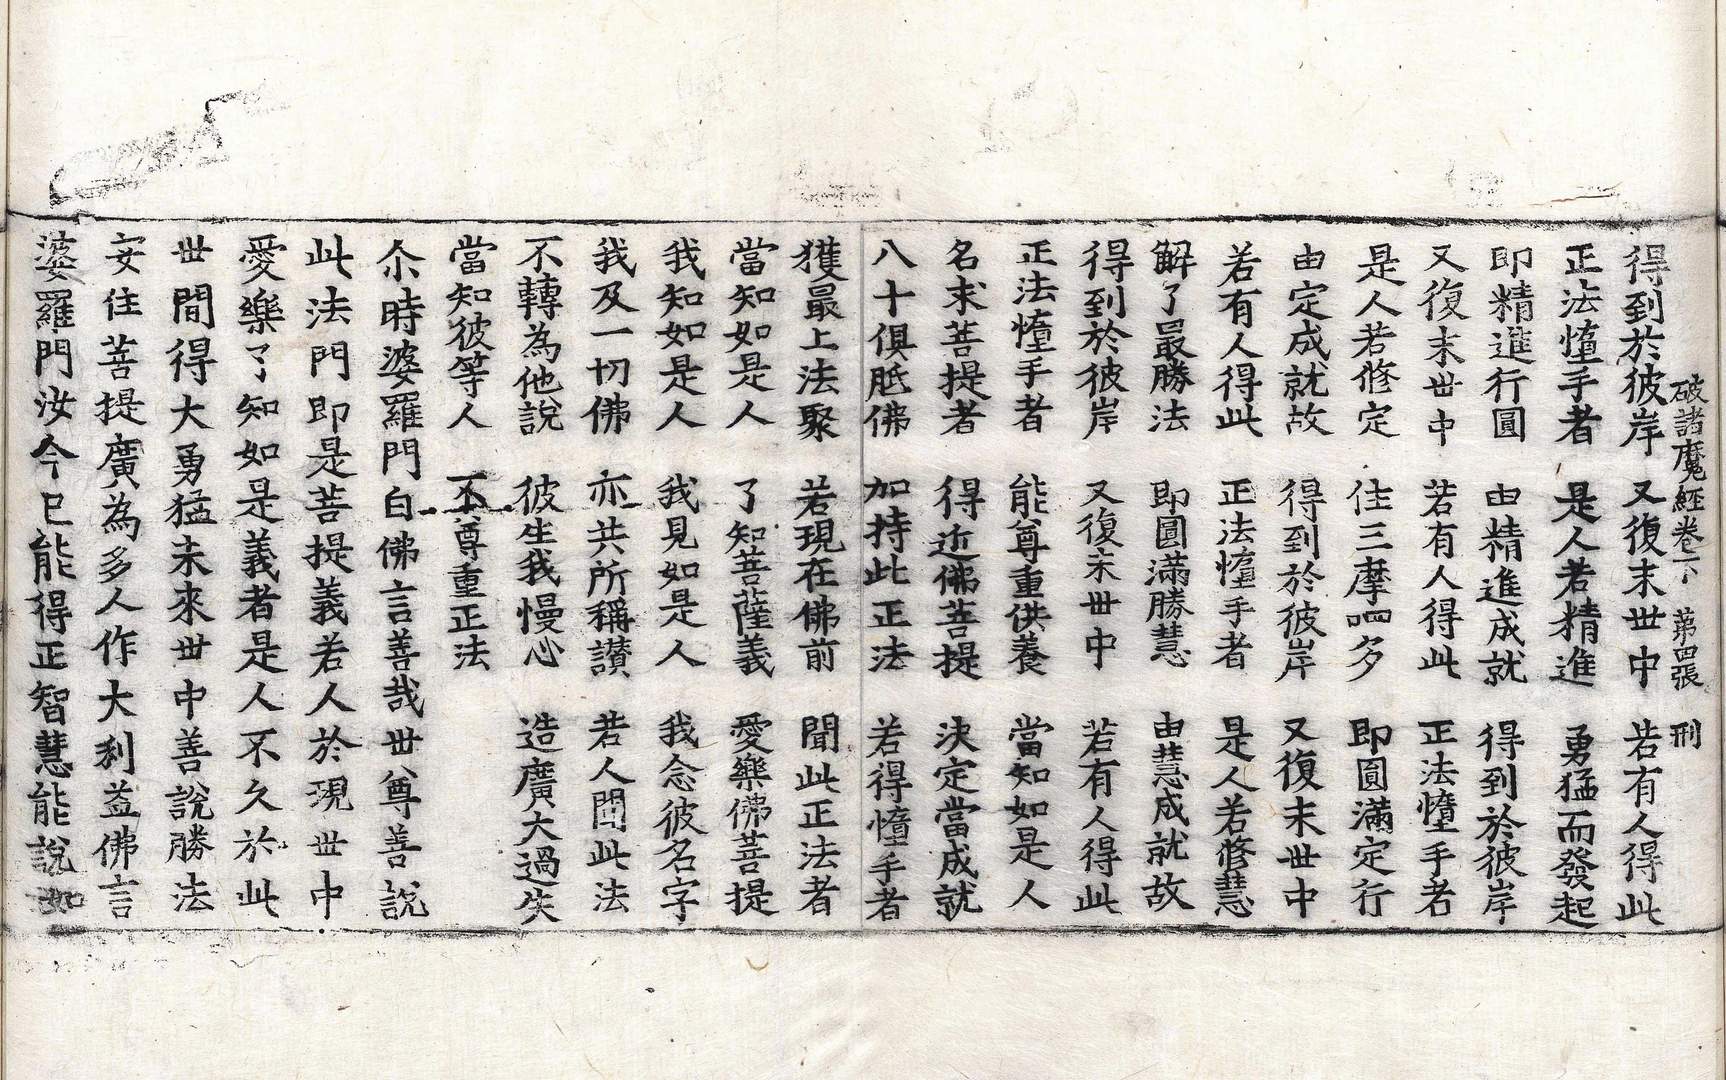 破諸魔經卷下 第四張 刑
得到於彼岸 又復末世中 若有人得此
正法憧手者 是人若精進 勇猛而發起
即精進行圓 由精進成就 得到於彼岸
又復末世中 若有人得此 正法憧手者
是人若修定 住三摩呬多 即圓滿定行
由定成就故 得到於彼岸 又復末世中
若有人得此 正法憧手者 是人若修慧
解了最勝法 即圓滿勝慧 由慧成就故
得到於彼岸 又復末世中 若有人得此
正法憧手者 能尊重供養 當知如是人
名求菩提者 得近佛菩提 決定當成就
八十俱胝佛 加持此正法 若得憧手者
獲最上法聚 若現在佛前 聞此正法者
當知如是人 了知菩薩義 愛樂佛菩提
我知如是人 我見如是人 我念彼名字
我及一切佛 亦共所稱讃 若人聞此法
不轉為他說 彼生我慢心 造廣大過失
當知彼等人 不尊重正法
尒時婆羅門白佛言善哉世尊善說
此法門即是菩提義若人於現世中
愛樂了知如是義者是人不久於此
世間得大勇猛未來世中善說勝法
安住菩提廣為多人作大利益佛言
婆羅門汝今已能得正智慧能說如